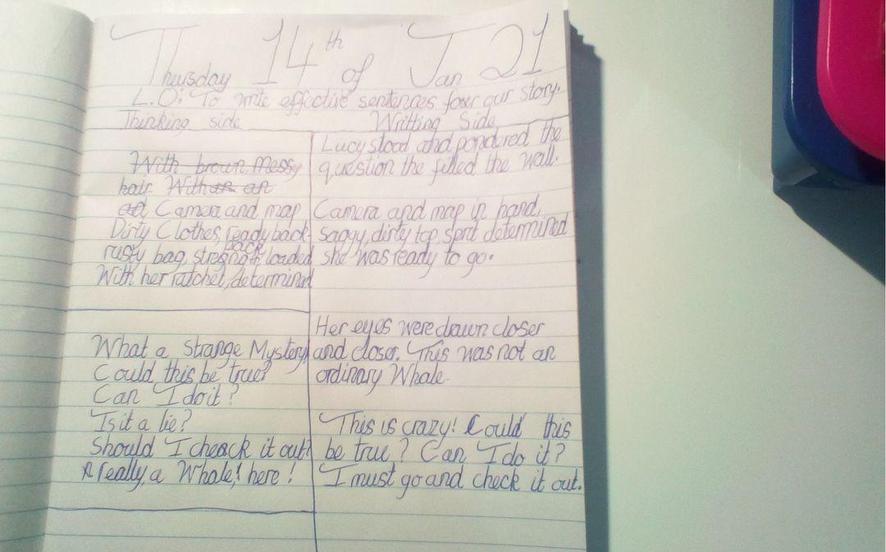 Thursday 14th of Jan 21
L.O: To write effective sentences four our story.
Thinking side
Writting Side
With brown messy
hair. With an an
Camera and map
Dirty Clothes, ready back
rusty bag, loaded
With her ratchel, determined
What a Strange Mystery
Could this be true?
Can I do it?
Is it a lie?
Should I cheack it out?
A really a Whale! here!
Lucy stood and pondered the
question the filled the wall.
Camera and map in hand,
Saggy, dirty top, determined
she was ready to go.
Her eyes were drawn closer
and closer. This was not an
ordinary Whale.
This is crazy! Could this
be true? Can I do it?
I must go and check it out.